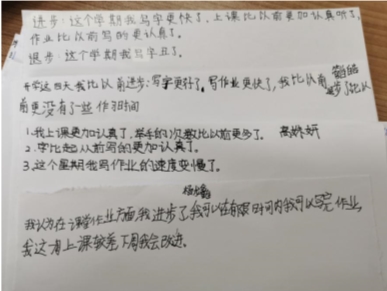 进步:这个学期我写字更快了、上课比以前更加认真听了,
作业比以前写的更认真了。
退步:这个学期我写字丑了。
开学这四天我比以前进步:写字更好了,写作业更快了,我比以前
步了比以
前更没有了一些作习时间
1.我上课更加认真了,举手的次数比以前更多了。 高姝妍
2.字比起从前写的更加认真了。
3.这个星期我写作业的速度变慢了。
我认为在课堂作业方面,我进步了,我可以在有限时间内我可以写完作业,
我这周上课较差下周我会改进.